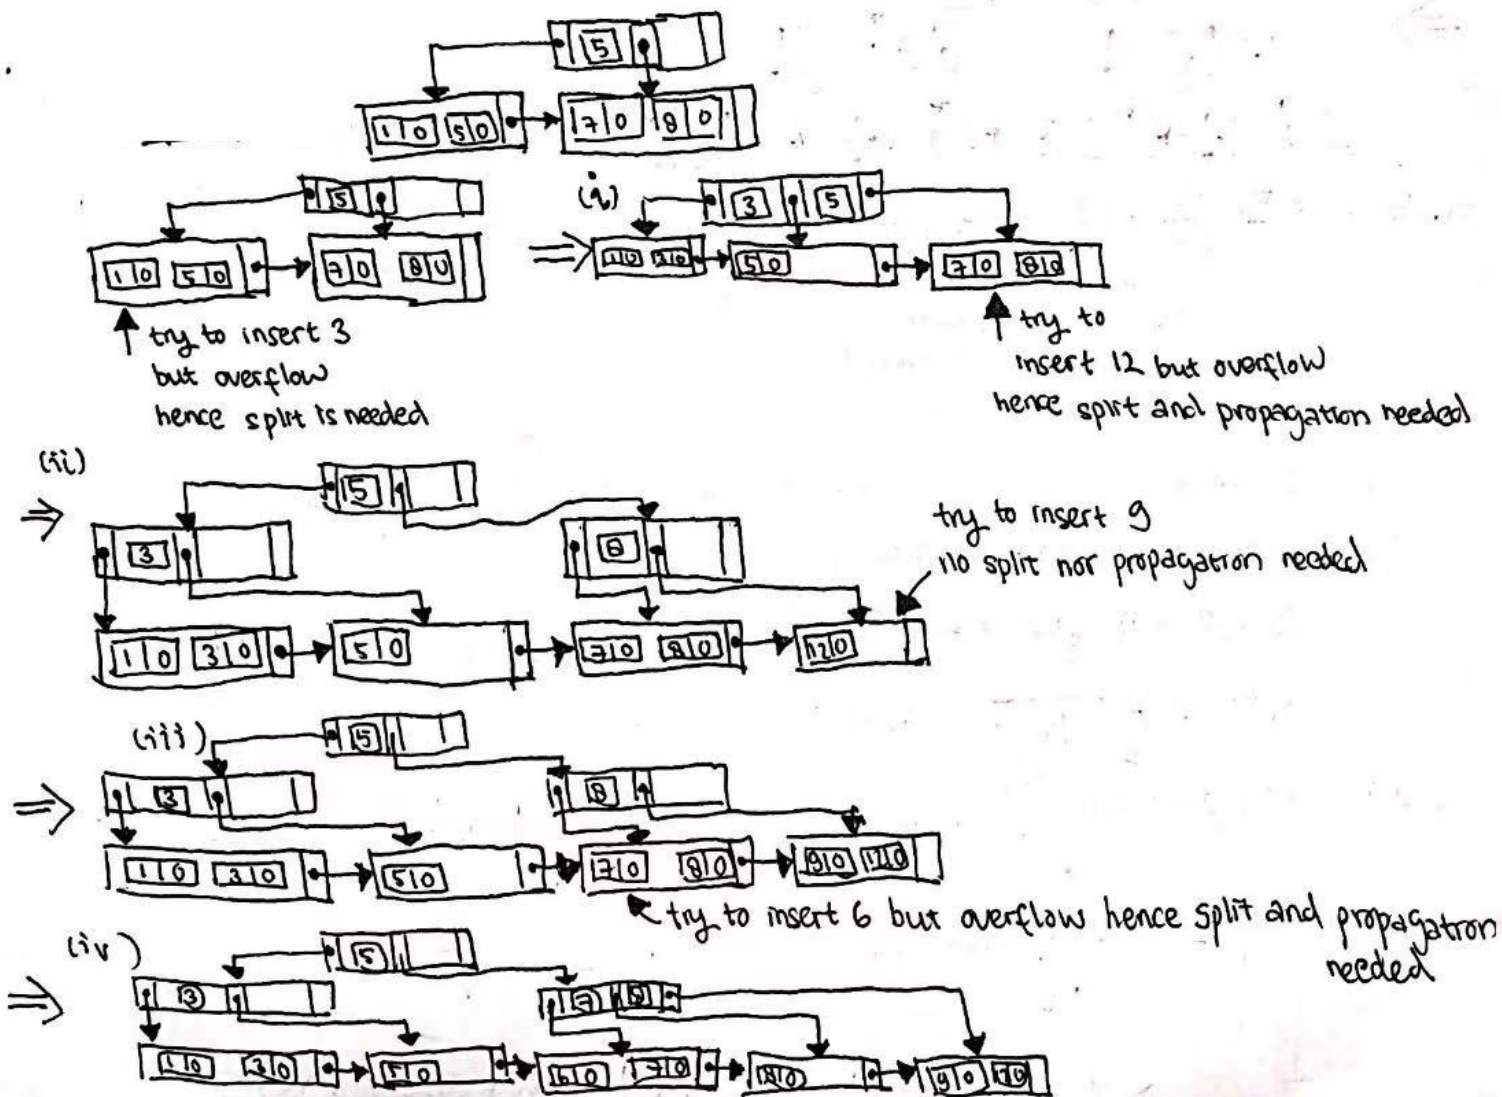 5
1 0 5 0 7 0 8 0
5
1 0 5 0 7 0 8 0
try to insert 3
but overflow
hence split is needed
(i)
3 5
1 0 3 0 5 0 7 0 8 0
try to
insert 12 but overflow
hence split and propagation needed
(ii)
5
3 8
1 0 3 0 5 0 7 0 8 0 12 0
try to insert 9
no split nor propagation needed
(iii)
5
3 8
1 0 3 0 5 0 7 0 8 0 9 0 12 0
try to insert 6 but overflow hence split and propagation
needed
(iv)
5
3 7 8
1 0 3 0 5 0 6 0 7 0 8 0 9 0 12 0